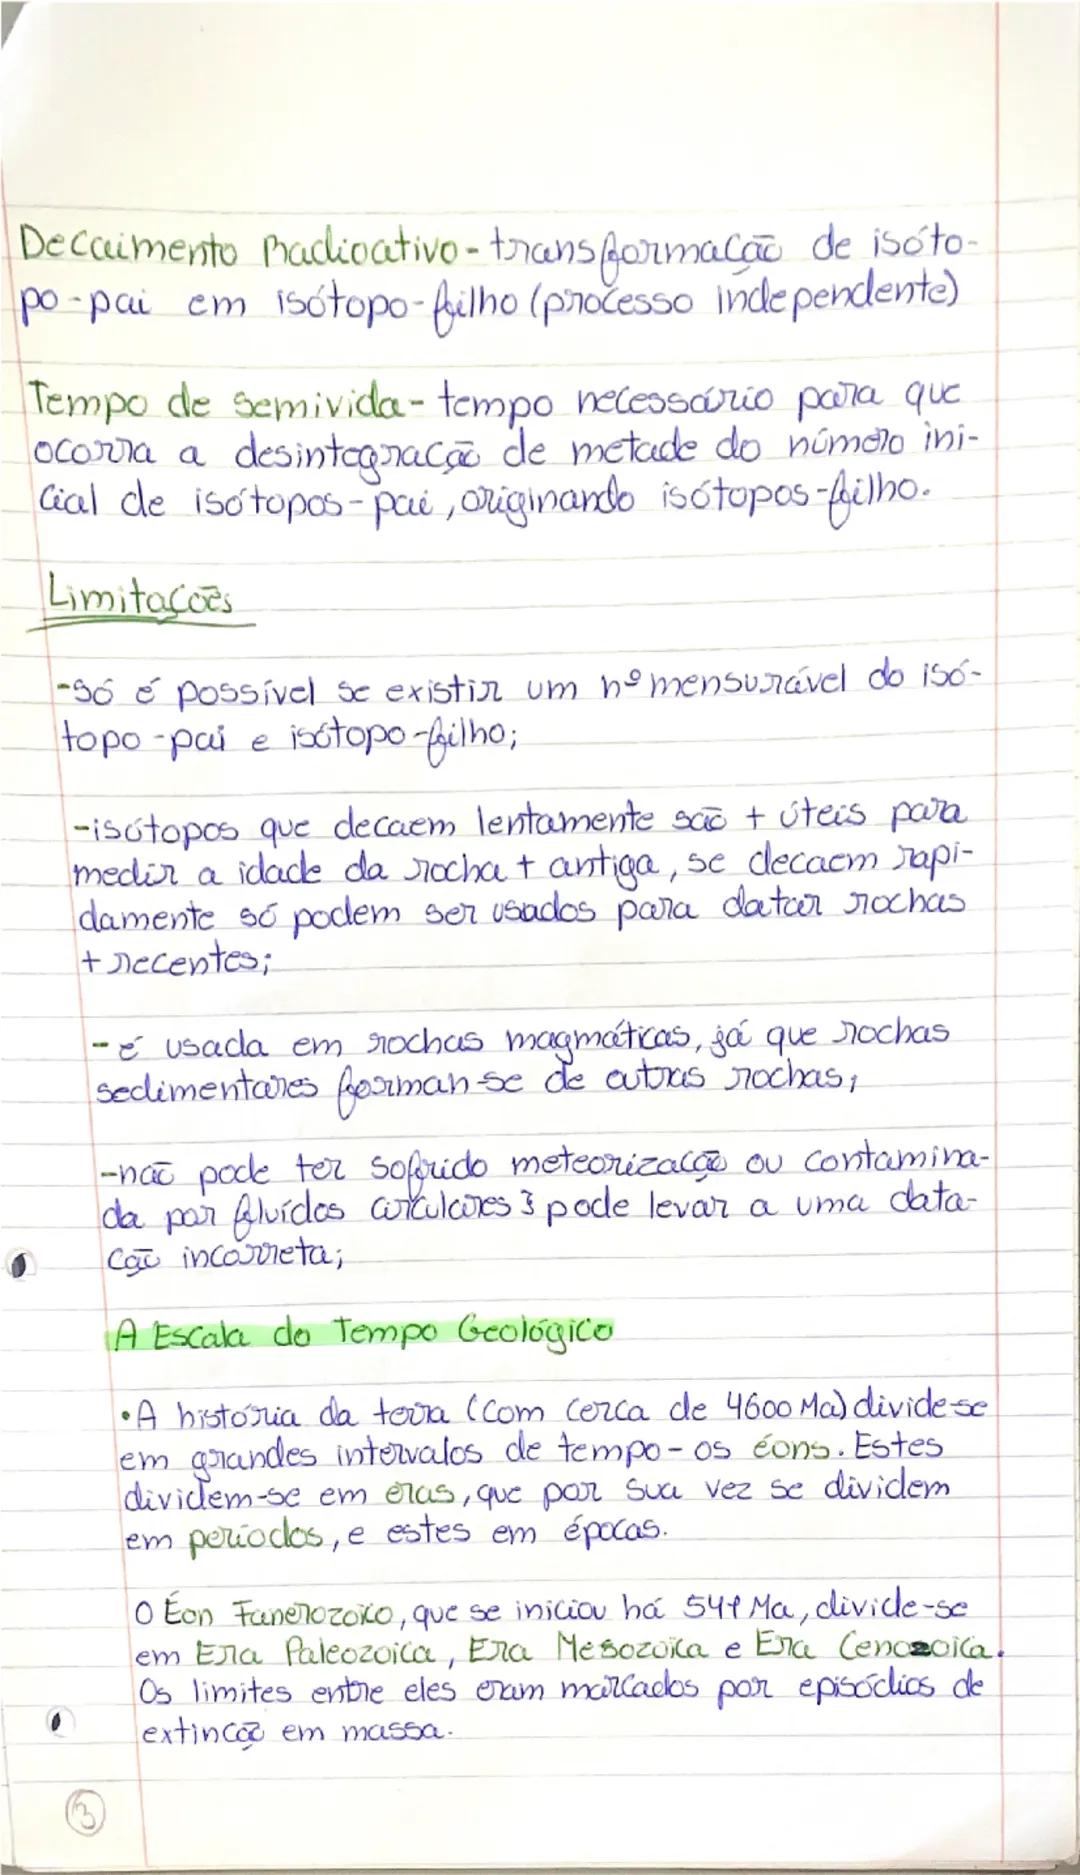 Decaimento Radioativo - transformação de isóto-
po-pai em isótopo-filho (processo independente)
Tempo de semivida - tempo necessário para que
ocorra a desintegração de metade do número ini-
cial de isótopos-pai, originando isótopos-filho.
Limitações
-só é possível se existir um nº mensurável do isó-
topo-pai e isótopo-filho;
-isótopos que decaem lentamente são + úteis para
medir a idade da rocha + antiga, se decaem rapi-
damente só podem ser usados para datar rochas
+ recentes;
-é usada em rochas magmáticas, já que rochas
sedimentares forman-se de outras rochas;
-não pode ter sofrido meteorização ou contamina-
da por fluídos circulares } pode levar a uma data-
ção incorreta;
A Escala do Tempo Geológico
•A história da terra (com cerca de 4600 Ma) divide-se
em grandes intervalos de tempo - os éons. Estes
dividem-se em eras, que por sua vez se dividem
em períodos, e estes em épocas.
O Éon Fanerozoico, que se iniciou há 541 Ma, divide-se
em Era Paleozoica, Era Mesozoica e Era Cenozoica.
Os limites entre eles eram marcados por episódios de
extinção em massa.
3